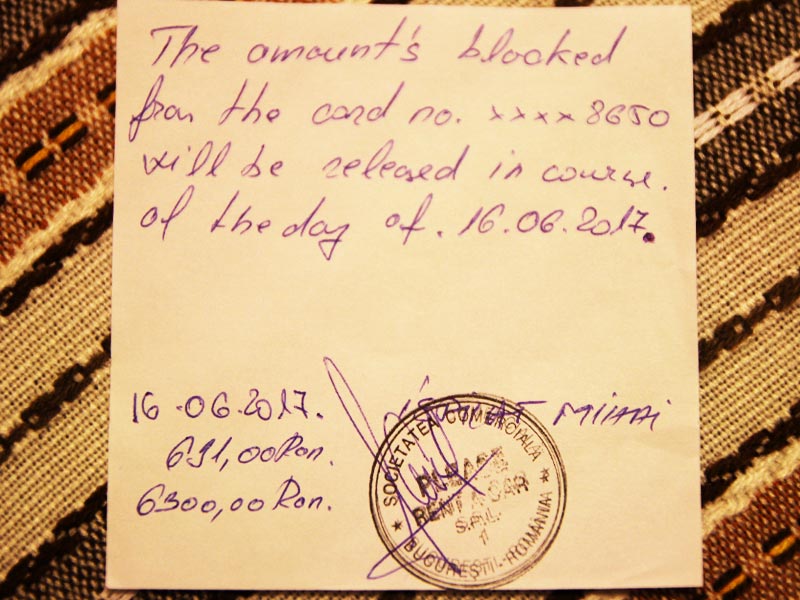 The amount's blocked
from the card no. xxxx 8650
will be released in course.
of the day of. 16.06.2017.
16.06.2017.
691,00 Ron.
6300,00 Ron.
MIHAI
SOCIETATEA COMERCIALA
PLEASE
RENT A CAR
S.R.L.
1
BUCUREŞTI-ROMANIA